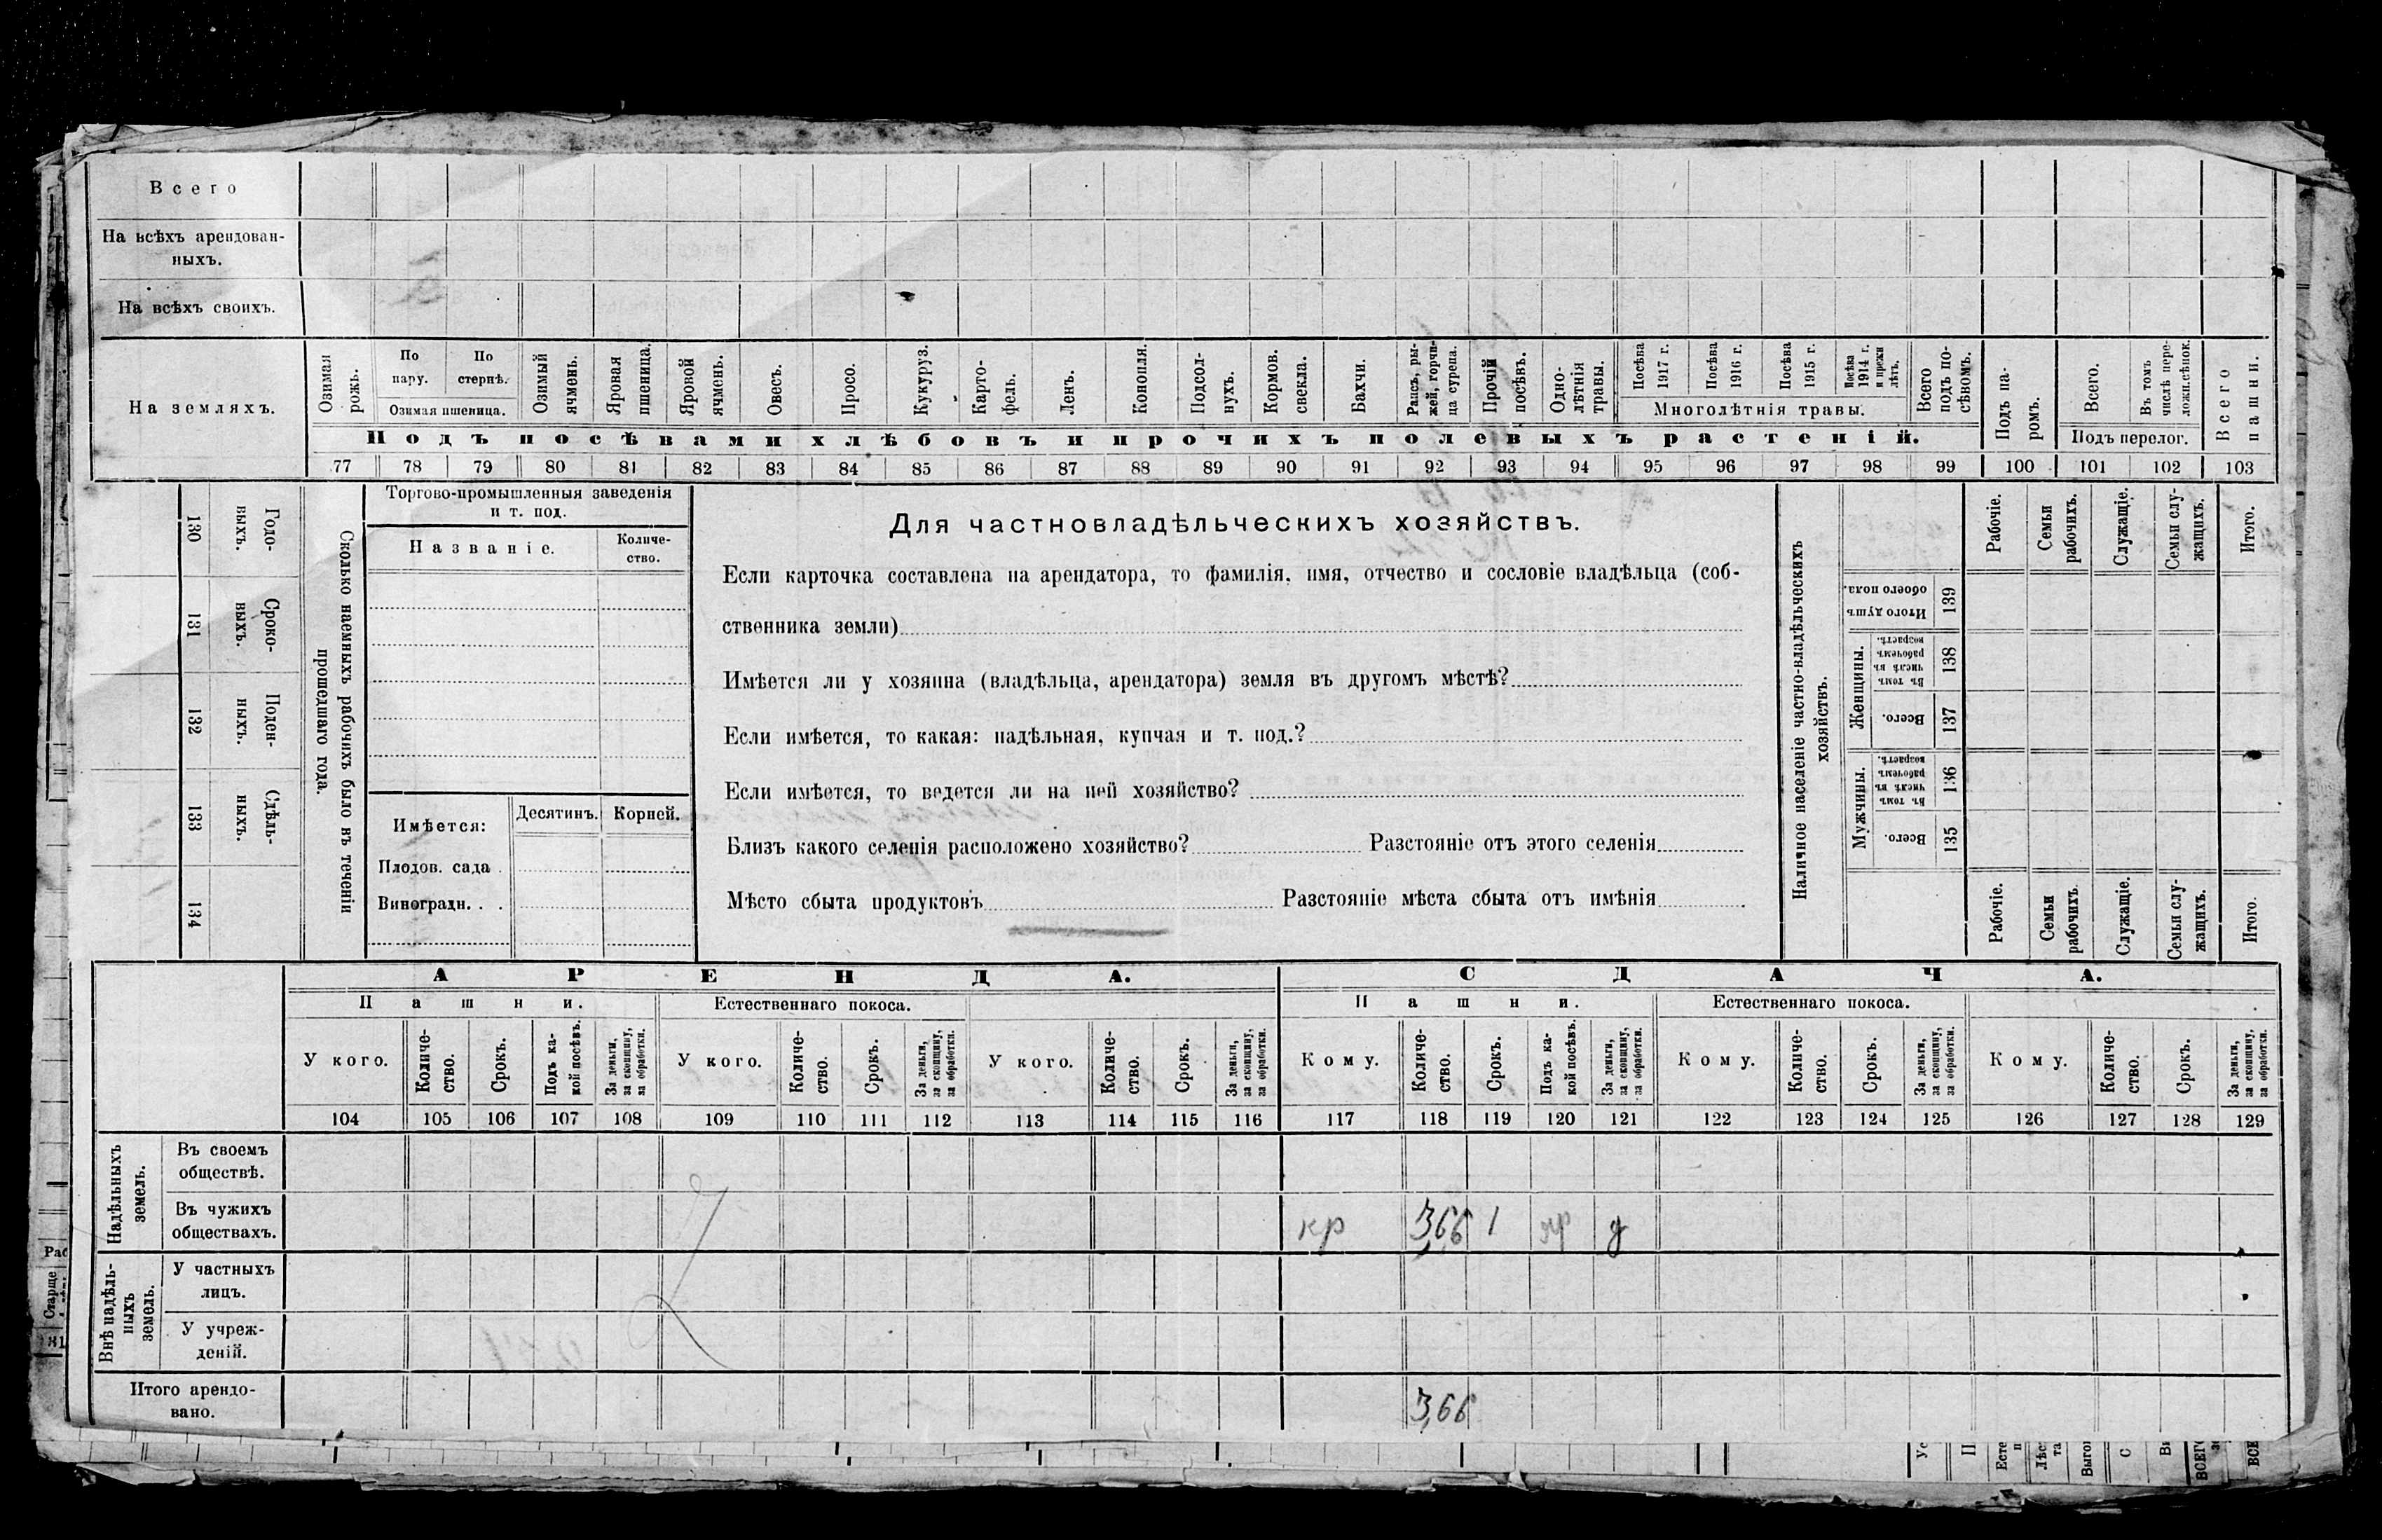 Всего
На всѣхъ арендован-
ныхъ.
На всѣхъ своихъ.
На земляхъ.
Озимая рожь.
По пару.
По стернѣ.
Озимая пшеница.
Озимый ячмень.
Яровая пшеница.
Яровой ячмень.
Овесъ.
Просо.
Кукуруз.
Карто-
фель.
Ленъ.
Конопля.
Подсол-
нухъ.
Кормов. свекла.
Бахчи.
Рапсъ, ры-
жей, горчи-
ца сурепа.
Прочій посѣвъ.
Одно-
лѣтнія травы.
Посѣва 1917 г.
Посѣва 1916 г.
Посѣва 1915 г.
Посѣва 1914 г. и прежн лѣтъ.
Многолѣтнія травы.
Всего подъ по-
сѣвомъ.
Подъ па-
ромъ.
Всего.
Въ томъ числѣ пере-
Подъ перелог.
Всего пашни.
Подъ посѣвами хлѣбовъ и прочихъ полевыхъ растеній.
77 78 79 80 81 82 83 84 85 86 87 88 89 90 91 92 93 94 95 96 97 98 99 100 101 102 103
Годо-
ныхъ.
130
Сроко-
выхъ.
131
Поден-
ныхъ.
132
Сдѣль-
ныхъ.
133
134
Сколько наемныхъ рабочихъ было въ теченіи
прошедшаго года.
Торгово-промышленныя заведенія
и т. под.
Названіе.
Количе-
ство.
Имѣется:
Десятинъ.
Корней.
Плодов. сада .
Виноградн. . .
Для частновладѣльческихъ хозяйствъ.
Если карточка составлена на арендатора, то фамилія, имя, отчество и сословіе владѣльца (соб-
ственника земли)
Имѣется ли у хозяина (владѣльца, арендатора) земля въ другомъ мѣстѣ?
Если имѣется, то какая: надѣльная, купчая и т. под.?
Если имѣется, то ведется ли на ней хозяйство?
Близъ какого селенія расположено хозяйство? Разстояніе отъ этого селенія
Мѣсто сбыта продуктовъ Разстояніе мѣста сбыта отъ имѣнія
Наличное населеніе частно-владѣльческихъ
хозяйствъ.
Итого душъ
обоего пола.
139
Женщины.
Въ томъ числѣ въ рабочемъ возрастѣ.
138
Всего.
137
Мужчины.
Въ томъ числѣ въ рабочемъ возрастѣ.
136
Всего.
135
Рабочіе.
Семьи рабочихъ.
Служащіе.
Семьи слу-
жащихъ.
Итого.
Рабочіе.
Семьи рабочихъ.
Служащіе.
Семьи слу-
жащихъ.
Итого.
АРЕНДА.
СДАЧА.
Пашни.
Естественнаго покоса.
Пашни.
Естественнаго покоса.
У кого.
Количе-
ство.
Срокъ.
Подъ ка-
кой посѣвъ.
За деньги, за скопщину, за обработки.
У кого.
Количе-
ство.
Срокъ.
За деньги, за скопщину, за обработки.
У кого.
Количе-
ство.
Срокъ.
За деньги, за скопщину, за обработки.
Кому.
Количе-
ство.
Срокъ.
Подъ ка-
кой посѣвъ.
За деньги, за скопщину, за обработки.
Кому.
Количе-
ство.
Срокъ.
За деньги, за скопщину, за обработки.
Кому.
Количе-
ство.
Срокъ.
За деньги, за скопщину, за обработки.
104 105 106 107 108 109 110 111 112 113 114 115 116 117 118 119 120 121 122 123 124 125 126 127 128 129
Надѣльныхъ
земель.
Въ своемъ
обществѣ.
Въ чужихъ
обществахъ.
кр 3,66 1 яр д
Внѣ надѣль-
ныхъ
земель.
У частныхъ
лицъ.
У учреж-
деній.
Итого арендо-
вано.
3,66
Старше